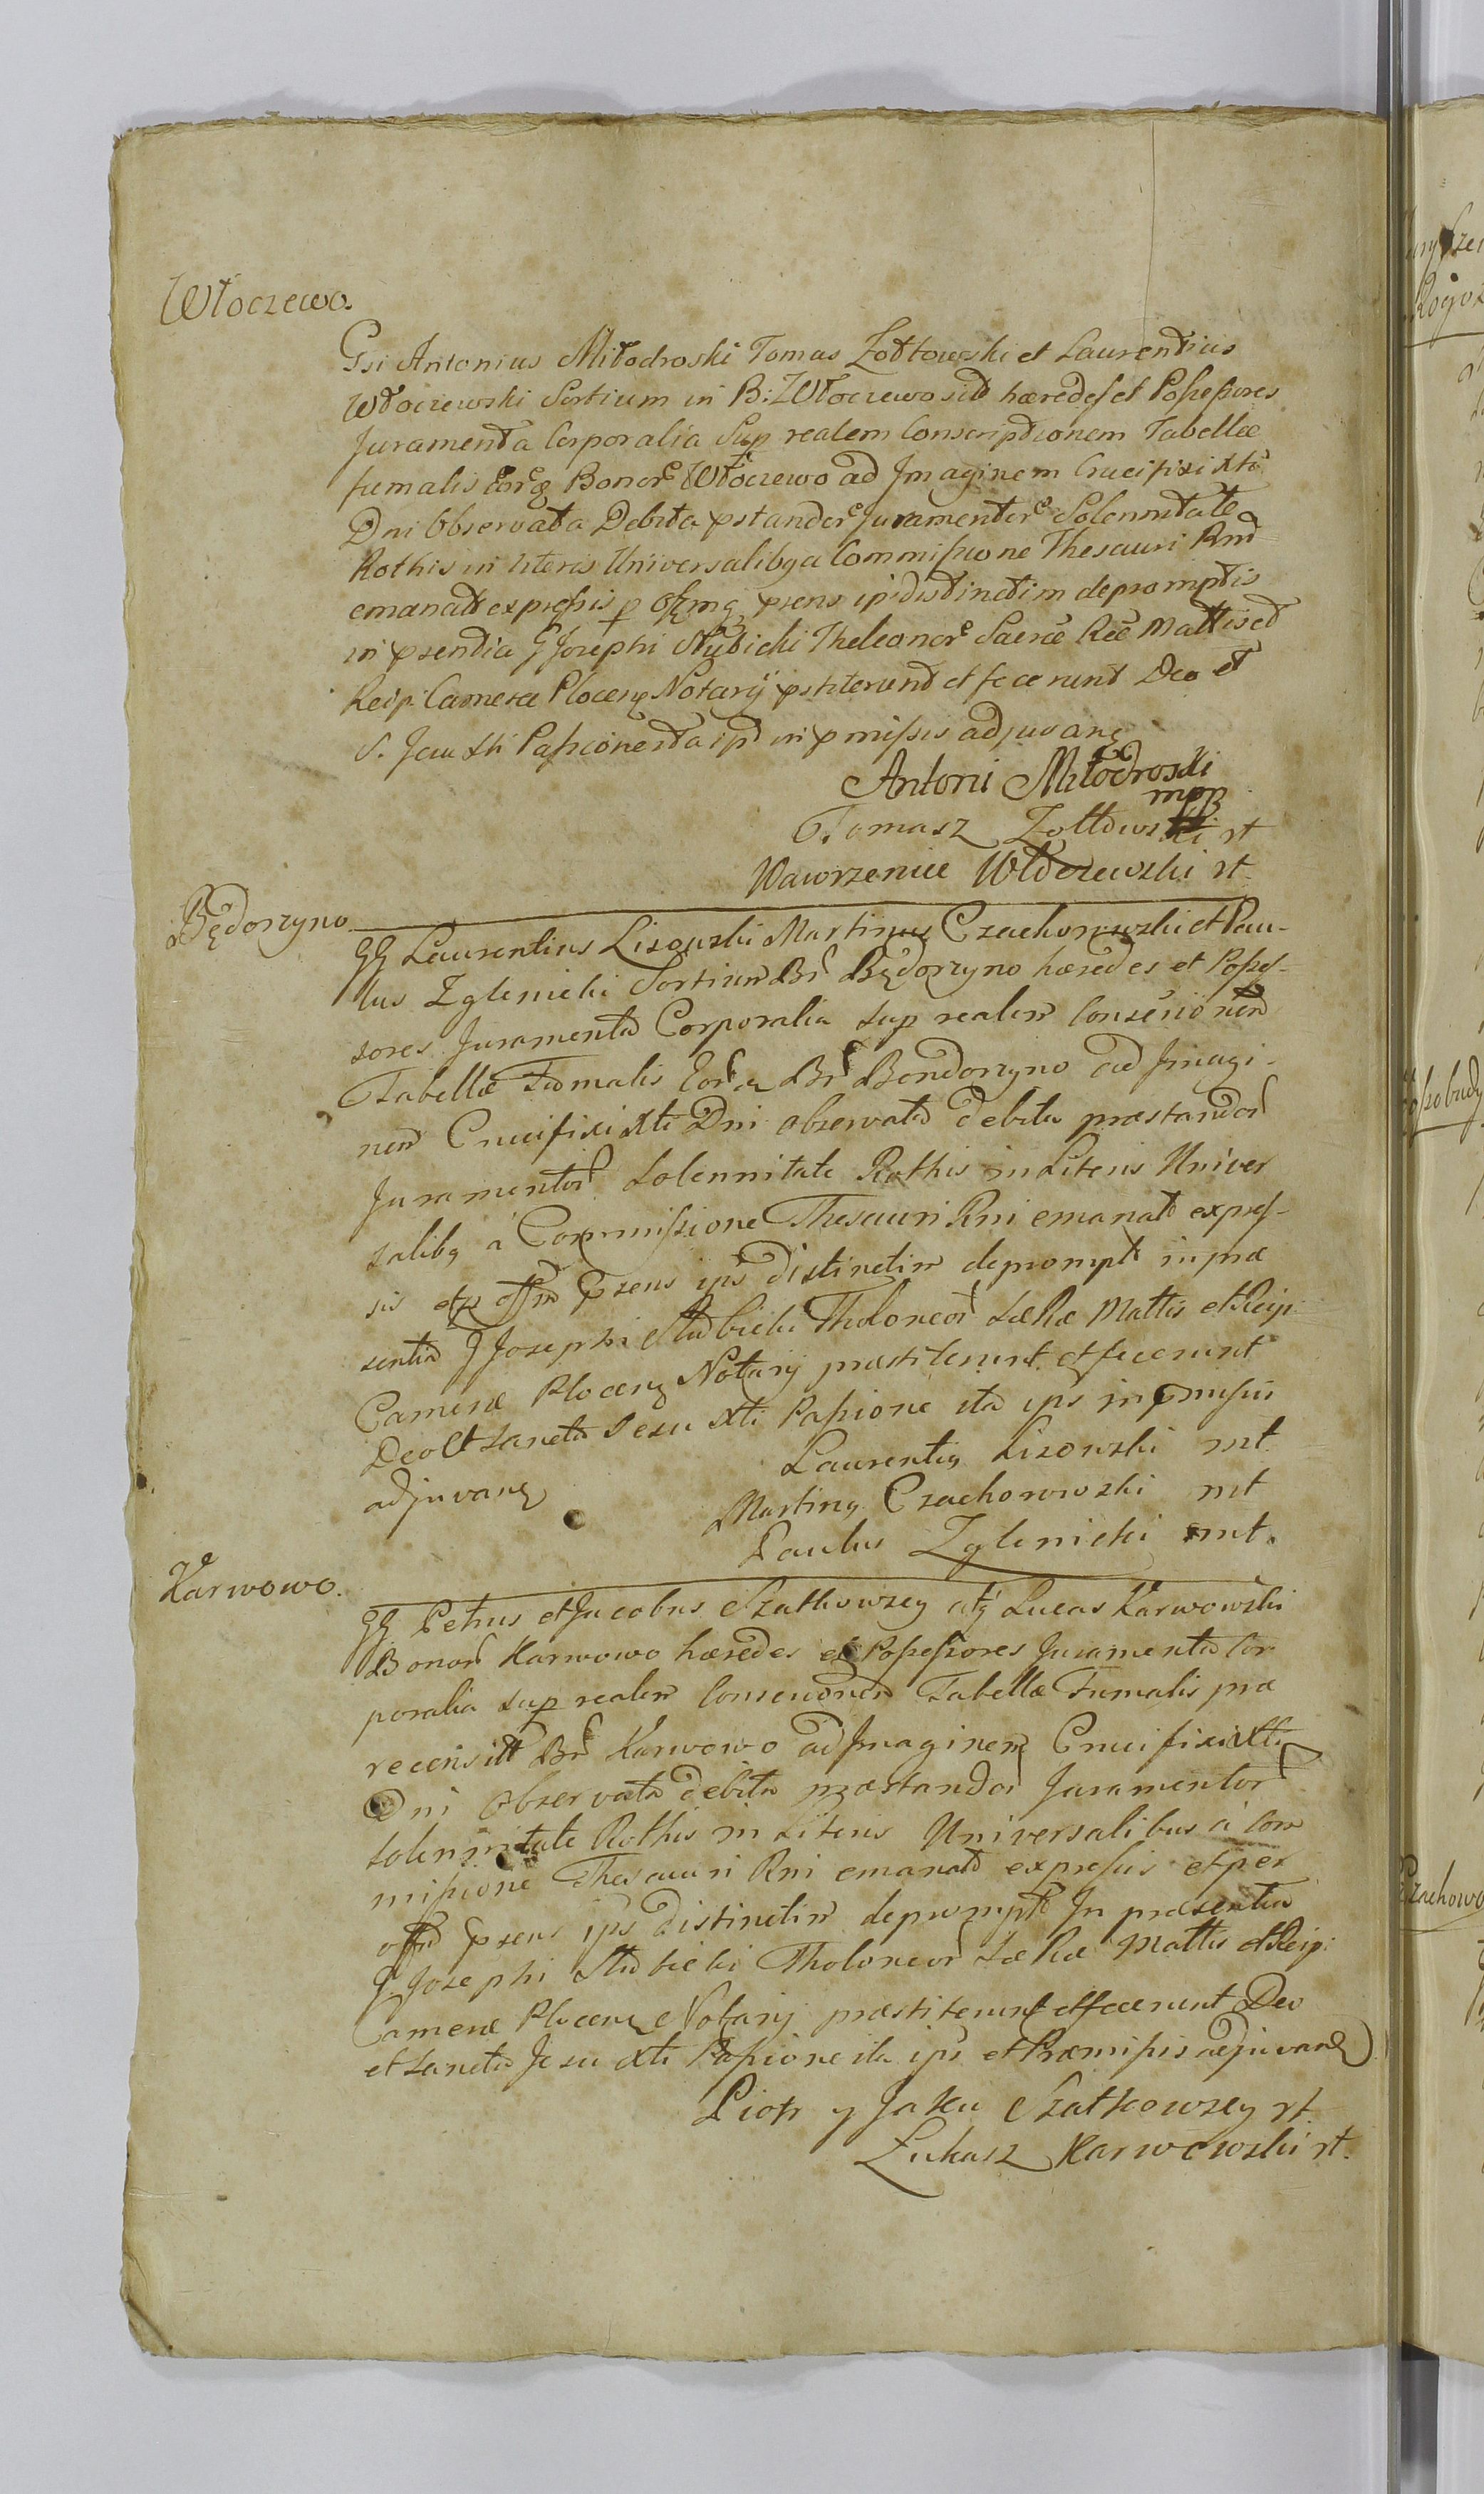 Włoczewo.
Gsi Antonius Miłodroski Tomas Zołtowski et Laurentius
Włoczewski Sortium in B: Włoczewo sitt hæredes et Possessores
Juramenta Corporalia Sup realem Conscriptionem Tabellæ
fumalis Eorq Bonor Włoczewo ad Imaginem Crucifixi Xti
Dni Observata Debita pstandor Juramentor Solennitate
Rothis in literis Universalibq a Commissione Thesauri Rni
emanatt expressis p Offmq prens ip distinctim depromptis
in prsentia G Josephi Słubicki Theleonor Sacræ Ræ Mattis et
Reip. Cameræ Plocens Notarij pstiterunt et fecerunt Deo et
S. Jesu Xti Passione ita ip in pmissis adjuvans
Antoni Miłodroski
mpp
Tomasz Zołtowski rt
Wawrzeniec Włoczewski rt
Będorzyno
GG Laurentius Lisowski Martinus Czachorowski et Pau-
lus Zglenicki Sortium Br Będorzyno hæredes et Posses-
sores Juramenta Corporalia sup realem Conscrionem
Tabellæ Fumalis Eorq Br Bendorzyno ad Imagi-
nem Crucifixi Xti Dni observata debita præstandor
Juramentor Solennitate Rothis in Literis Univer
salibq à Commissione Thesauri Rni emanatt expres-
sis etp offm prens ips distinctim deprompt in præ
sentia G Josephi Słubicki Tholoneor Sæ Ræ Mattis et Reip:
Cameræ Plocens Notarij præstiterunt et fecerunt
Deo Et Sancta Jesu Xti Passione ita ips in pmissis
adjuvans
Laurentiq Lisowski mt.
Martinq Czachorowski mt
Paulus Zglenicki mt.
Karwowo.
GG Petrus et Jacobus Szatkowscy atq Lucas Karwowski
Bonor Karwowo hæredes et Possessores Juramenta Cor
poralia sup realem Conscrionem Tabellæ Fumalis præ
recensitt Br Karwowo ad Imaginem Crucifixi Xti
Dni Observata debita præstandor Juramentor
solennitate Rothis in Literis Universalibus à Com
missione Thesauri Rni emanatt expressis et per
offm prens ips distinctim deprompt In præsentia
G. Josephi Słubicki Tholoneor Sæ Ræ Mattis et Reip:
Cameræ Plocens Notarij præstiterunt et fecerunt Deo
et Sancta Jesu Xti Passione ita ips et Præmissis adjuvans
Piotr y Jaku Szatkowscy rt
Łukasz Karwowski rt.